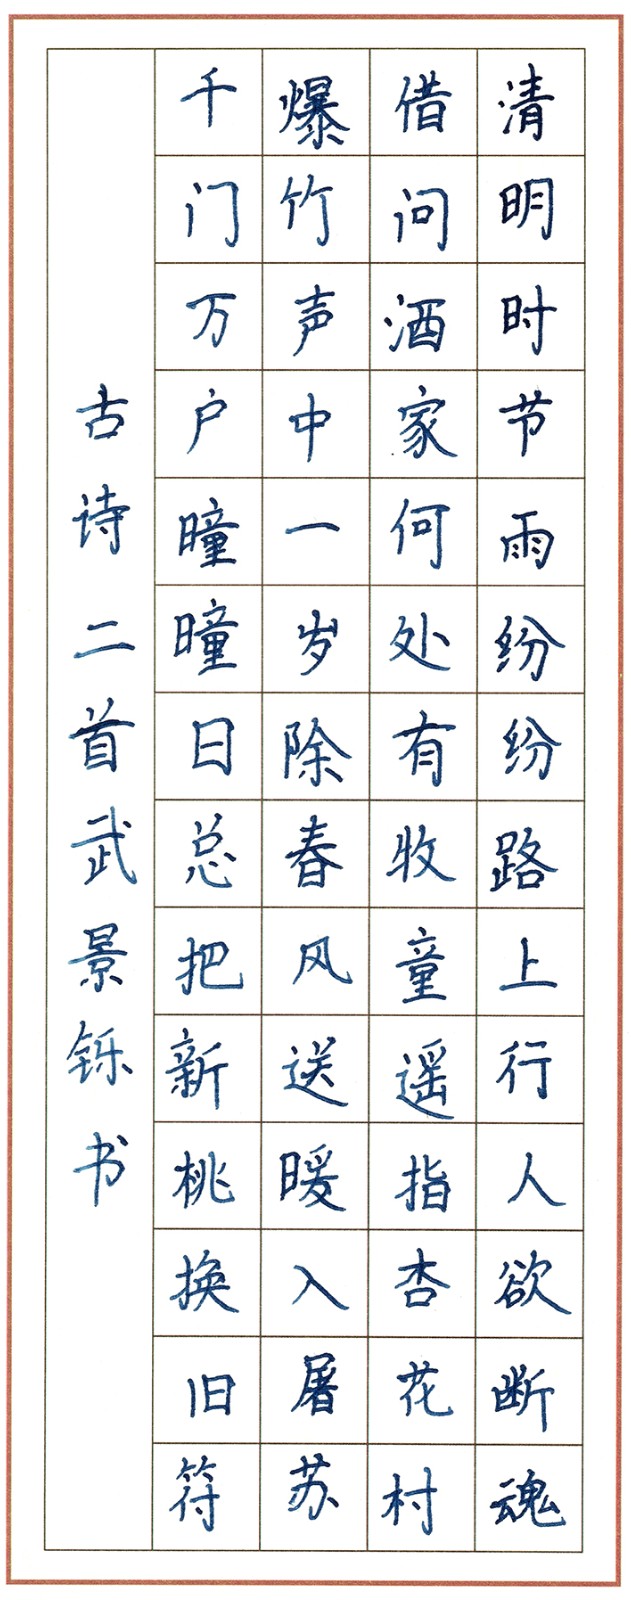 清明时节雨纷纷路上行人欲断魂
借问酒家何处有收童遥指杏花村
爆竹声中一岁除春风送暖入屠苏
千门万户曈曈日总把新桃换旧符
古诗二首武景铄书